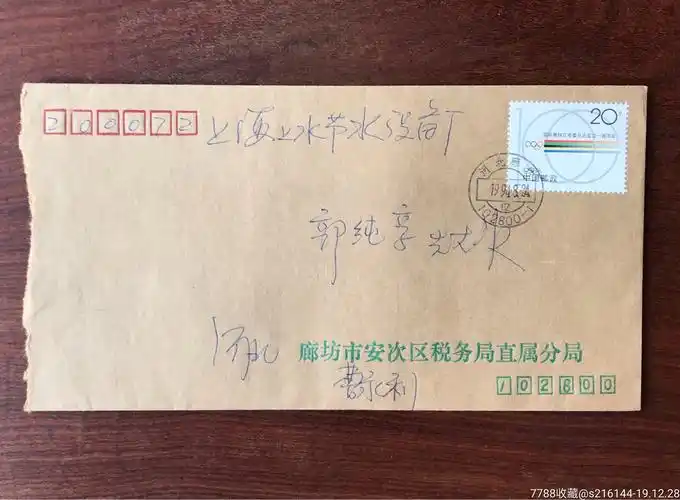 200072
上海上水节水设备厂
20分
国际奥林匹克委员会成立一百周年
中国邮政
河北廊坊
1994.8.24
102800-1
郭纯享
河北 廊坊市安次区税务局直属分局
曹永利
102800
7788收藏@s216144-19.12.28